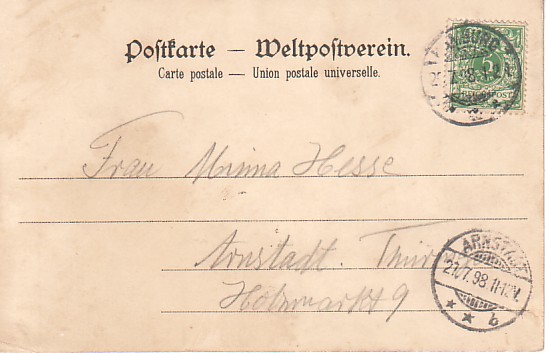 Postkarte — Weltpostverein.
Carte postale — Union postale universelle.
5
REICHSPOST
7.98.
Frau Minna Hesse
Arnstadt. Thür
Holzmarkt 9
ARNSTADT
21.7.98.11-12V.
* * b